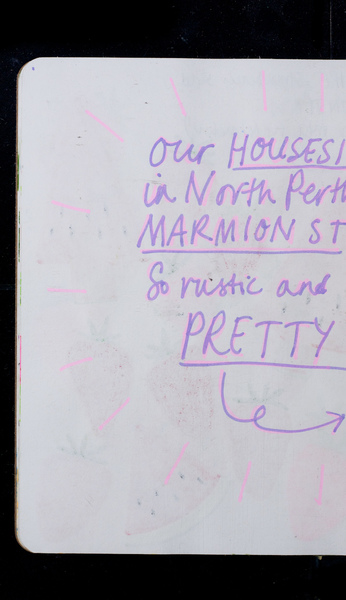 our HOUSESI
in North Perth
MARMION ST
So rustic and
PRETTY